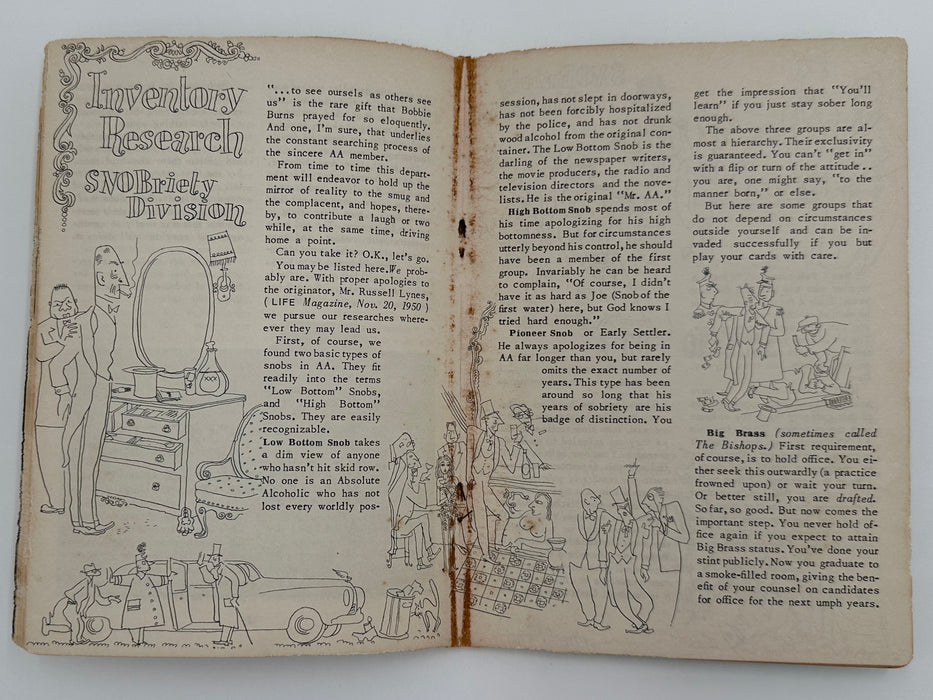 Inventory
Research
SNOBriety
Division
"...to see oursels as others see
us" is the rare gift that Bobbie
Burns prayed for so eloquently.
And one, I'm sure, that underlies
the constant searching process of
the sincere AA member.
From time to time this depart-
ment will endeavor to hold up the
mirror of reality to the smug and
the complacent, and hopes, there-
by, to contribute a laugh or two
while, at the same time, driving
home a point.
Can you take it? O.K., let's go.
You may be listed here. We prob-
ably are. With proper apologies to
the originator, Mr. Russell Lynes,
( LIFE Magazine, Nov. 20, 1950 )
we pursue our researches where-
ever they may lead us.
First, of course, we
found two basic types of
snobs in AA. They fit
readily into the terms
"Low Bottom" Snobs,
and "High Bottom"
Snobs. They are easily
recognizable.
Low Bottom Snob takes
a dim view of anyone
who hasn't hit skid row.
No one is an Absolute
Alcoholic who has not
lost every worldly pos-
XXX
session, has not slept in doorways,
has not been forcibly hospitalized
by the police, and has not drunk
wood alcohol from the original con-
tainer. The Low Bottom Snob is the
darling of the newspaper writers,
the movie producers, the radio and
television directors and the nove-
lists. He is the original "Mr. AA."
High Bottom Snob spends most of
his time apologizing for his high
bottomness. But for circumstances
utterly beyond his control, he should
have been a member of the first
group. Invariably he can be heard
to complain, "Of course, I didn't
have it as hard as Joe (Snob of the
first water) here, but God knows I
tried hard enough."
Pioneer Snob or Early Settler.
He always apologizes for being in
AA far longer than you, but rarely
omits the exact number of
years. This type has been
around so long that his
years of sobriety are his
badge of distinction. You
get the impression that "You'll
learn" if you just stay sober long
enough.
The above three groups are al-
most a hierarchy. Their exclusivity
is guaranteed. You can't "get in"
with a flip or turn of the attitude..
you are, one might say, "to the
manner born," or else.
But here are some groups that
do not depend on circumstances
outside yourself and can be in-
vaded successfully if you but
play your cards with care.
Big Brass (sometimes called
The Bishops.) First requirement,
of course, is to hold office. You ei-
ther seek this outwardly (a practice
frowned upon) or wait your turn.
Or better still, you are drafted.
So far, so good. But now comes the
important step. You never hold of-
fice again if you expect to attain
Big Brass status. You've done your
stint publicly. Now you graduate to
a smoke-filled room, giving the ben-
efit of your counsel on candidates
for office for the next umph years.